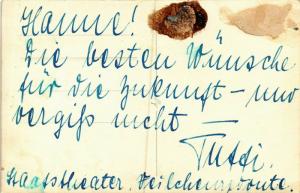 Hanne!
Die besten Wünsche
für die Zukunft – und
vergiß nicht –
Tutti.
Staatstheater. Veilchenredoute.